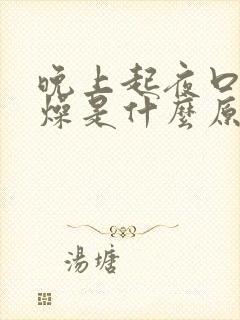 晚上起夜口
燥是什麼原
湯塘